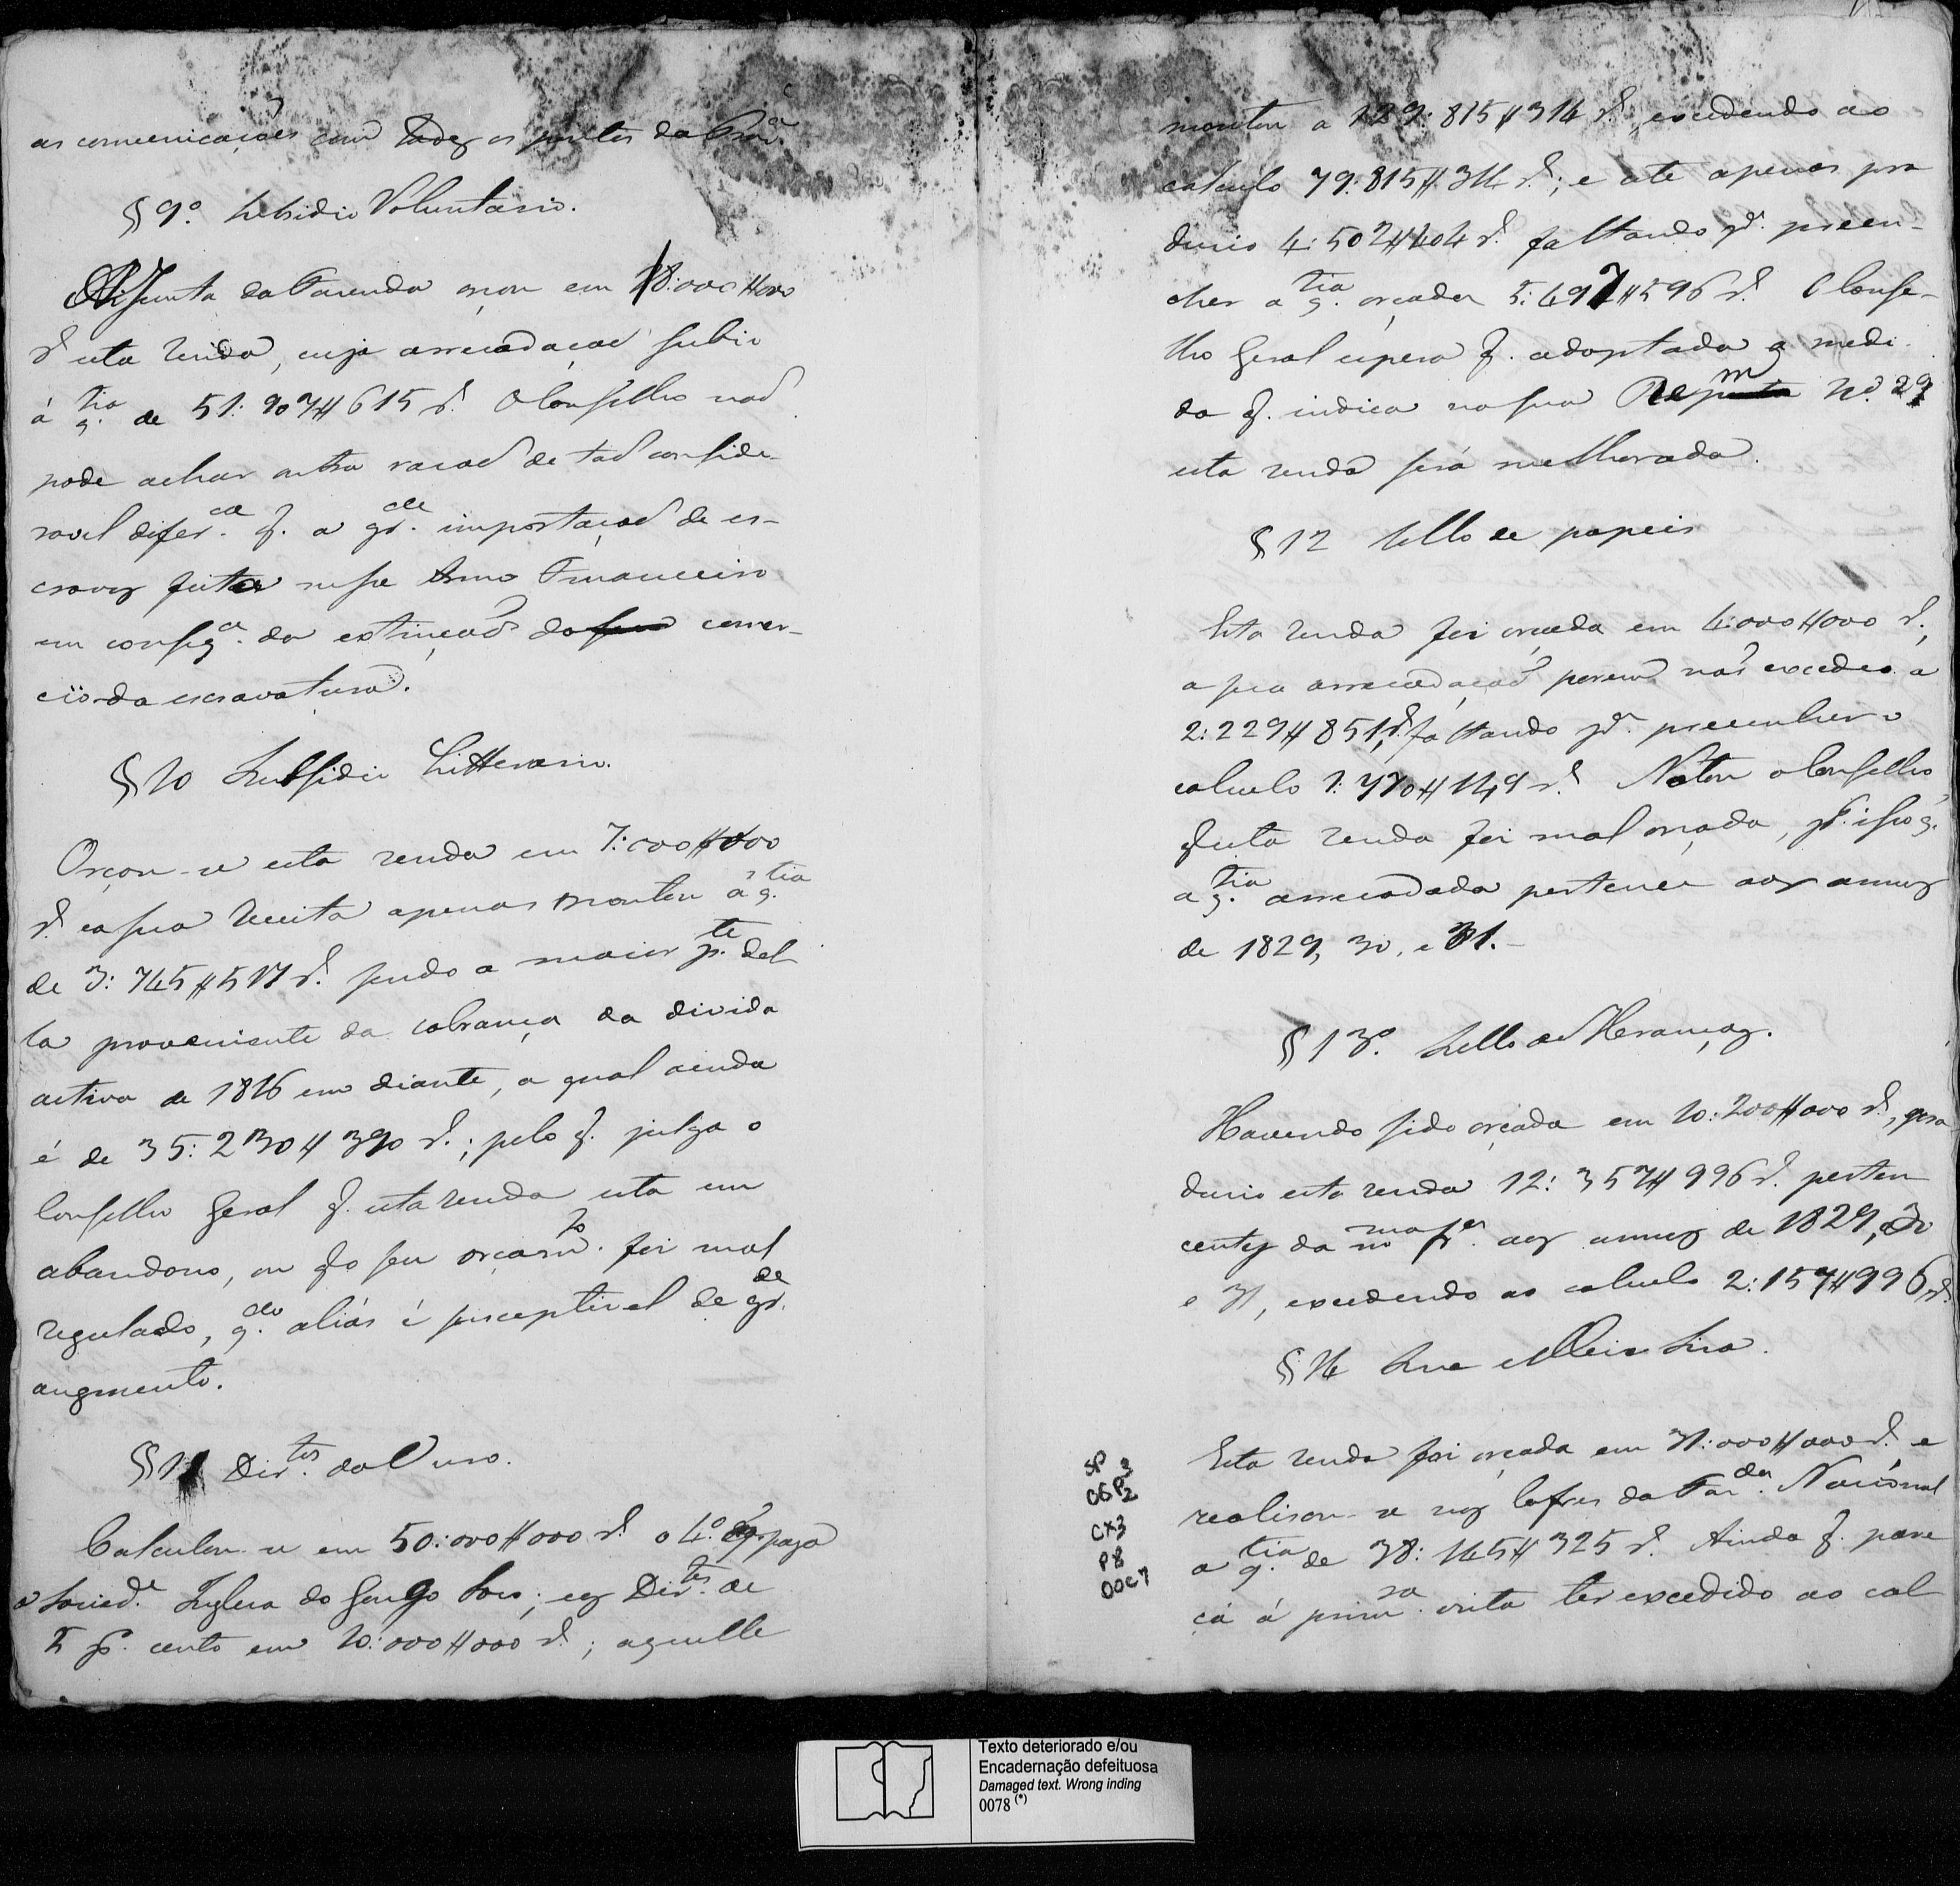 as communicações com todos os pontos da Prov.ᵃ
§ 9º. Subsidio Voluntario.
A Junta da Fazenda orçou em 18:000#000
rˢ esta renda, cuja arrecadaçaõ subio
á q.ᵗⁱᵃ de 51:907#615 rˢ. O Conselho naõ
pode achar outra razaõ de taõ conside-
ravel difer.ᶜᵃ q̃. a gr.ᵈᵉ importaçaõ de es-
cravos feita nesse Anno Financeiro
em conseq.ᵃ da extincçaõ do commer-
cio da escravatura.
§ 10 Subsidio Litterario.
Orçou-se esta renda em 7:000#000
rˢ e a sua Receita apenas montou á q.ᵗⁱᵃ
de 3:745#517 rˢ. sendo a maior p.ᵗᵉ del-
la proveniente da cobrança da divida
activa de 1816 em diante, a qual ainda
é de 35:230#390 rˢ.; pelo q̃. julga o
Conselho Geral q̃. esta renda esta em
abandono, ou q̃ o seu orçam.ᵗᵒ foi mal
regulado, q.ᵈᵒ aliás é susceptivel de gr.ᵈᵉ
augmento.
§ 11 Dir.ᵗᵒˢ do Ouro.
Calculou-se em 50:000#000 rˢ. o 4.º q̃ paga
a Socied.ᵉ Inglesa do Gongo Soco; e os Dir.ᵗᵒˢ de
5 p.ʳ cento em 10:000#000 rˢ.; aquelle
montou a 129:815#314 rˢ. excedendo ao
calculo 79:815#314 rˢ.; e este apenas pro
dusio 4:502#404 rˢ. faltando p.ᵃ preen-
cher a q.ᵗⁱᵃ orçada 5:497#596 rˢ. O Conse-
lho Geral espera q̃. adoptada a medi-
da q̃. indica na sua Repᵐ Nº. 29
esta renda será melhorada.
§ 12 Sello de papeis
Esta renda foi orçada em 4:000#000 rˢ.,
a sua arrecadaçaõ porem naõ excedeo a
2:229#851 rˢ, faltando p.ᵃ preencher o
calculo 1:770#149 rˢ. Notou o Conselho,
q̃ esta renda foi mal orçada, p.ʳ isso q̃.
a q.ᵗⁱᵃ arrecadada pertence aos annos
de 1829, 30, e 31.
§ 13º. Sello de Heranças.
Havendo sido orçada em 10:200#000 rˢ., pro
dusio esta renda 12:357#996 rˢ. perten
centes da mᵐᵃ fʳᵃ. aos annos de 1829, 30
e 31, excedendo ao calculo 2:157#996 rˢ.
§ 14 Sua e Meia Sisa.
Esta renda foi orçada em 31:000#000 rˢ. e
realisou-se nos Cofres da Faz.ᵈᵃ Nacional
a q.ᵗⁱᵃ de 38:145#325 rˢ. Ainda q̃. pare
ça á prim.ʳᵃ vista ter excedido ao cal
SP 3
CGP2
CX3
P8
DOC7
Texto deteriorado e/ou
Encadernação defeituosa
Damaged text. Wrong inding
0078 (*)